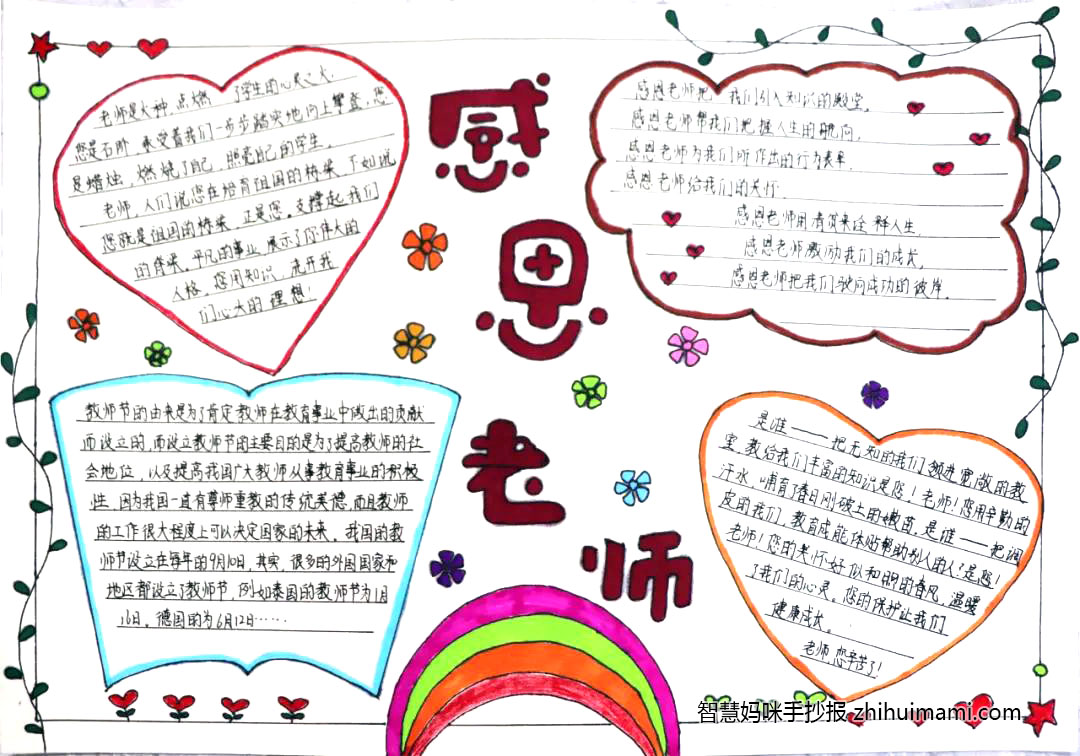 感恩老师
老师是火种,点燃了学生的心灵之火.
您是石阶,承受着我们一步步踏实地向上攀登,您
是蜡烛,燃烧了自己,照亮自己的学生.
老师,人们说您在培育祖国的栋梁,不如说
您就是祖国的栋梁.正是您,支撑起我们
的脊梁.平凡的事业,展示了你伟大的
人格,您用知识,充开我
们心大的理想!
感恩老师把我们引入知识的殿堂,
感恩老师帮我们把握人生的航向,
感恩老师为我们所作出的行为表率.
感恩老师给我们的关怀.
感恩老师用清贫来诠释人生,
感恩老师激励我们的成长,
感恩老师把我们驶向成功的彼岸.
教师节的由来是为了肯定教师在教育事业中做出的贡献
而设立的,而设立教师节的主要目的是为了提高教师的社
会地位,以及提高我国广大教师从事教育事业的积极
性,因为我国一直有尊师重教的传统美德,而且教师
的工作很大程度上可以决定国家的未来,我国的教
师节设立在每年的9月10日,其实,很多的外国国家和
地区都设立了教师节,例如泰国的教师节为1月
16日,德国的为6月12日……
是谁——把无知的我们领进宽敞的教
室,教给我们丰富的知识是您!老师!您用辛勤的
汗水,哺育了春日刚破土的嫩苗,是谁——把调
皮的我们,教育成能体贴帮助别人的人?是您!
老师!您的关怀好似和煦的春风,温暖
了我们的心灵.您的保护让我们
健康成长.
老师,您辛苦了!
智慧妈咪手抄报 zhihuimami.com